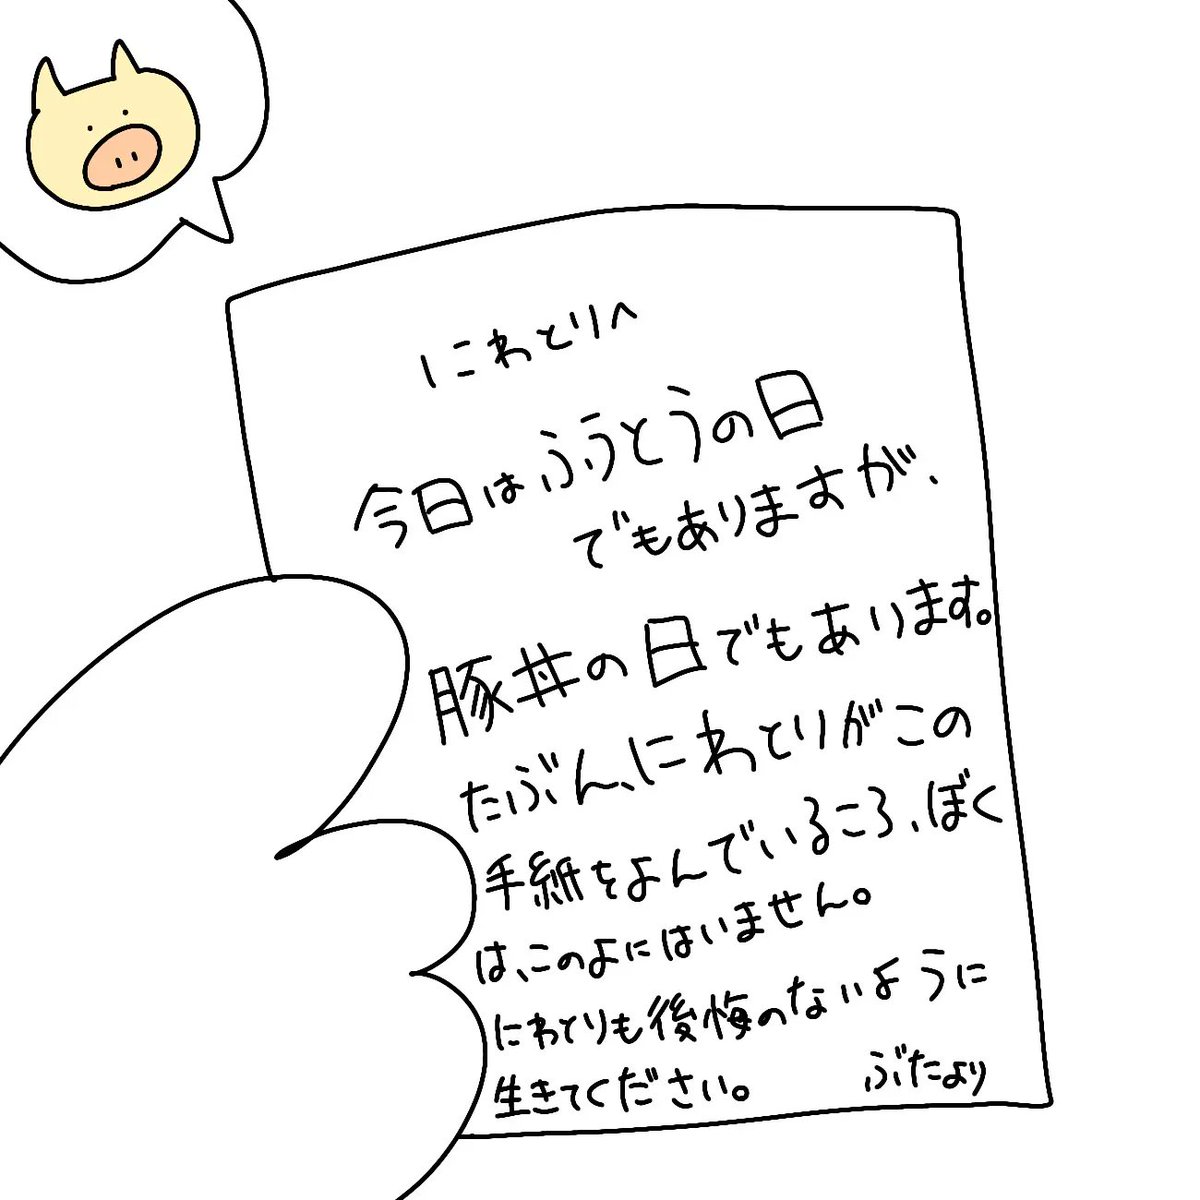 にわとりへ
今日はふうとうの日
でもありますが、
豚丼の日でもあります。
たぶん、にわとりがこの
手紙をよんでいるころ、ぼく
は、このよにはいません。
にわとりも後悔のないように
生きてください。 ぶたより